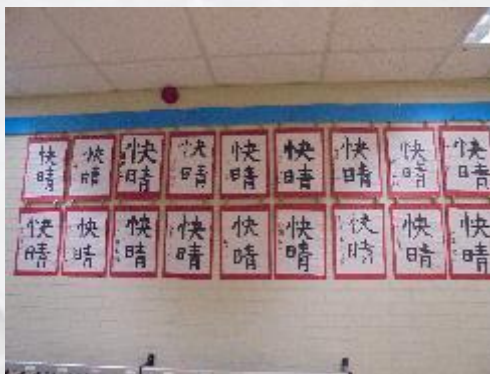 快晴 快晴 快晴 快晴 快晴 快晴 快晴 快晴 快晴
快晴 快晴 快晴 快晴 快晴 快晴 快晴 快晴 快晴